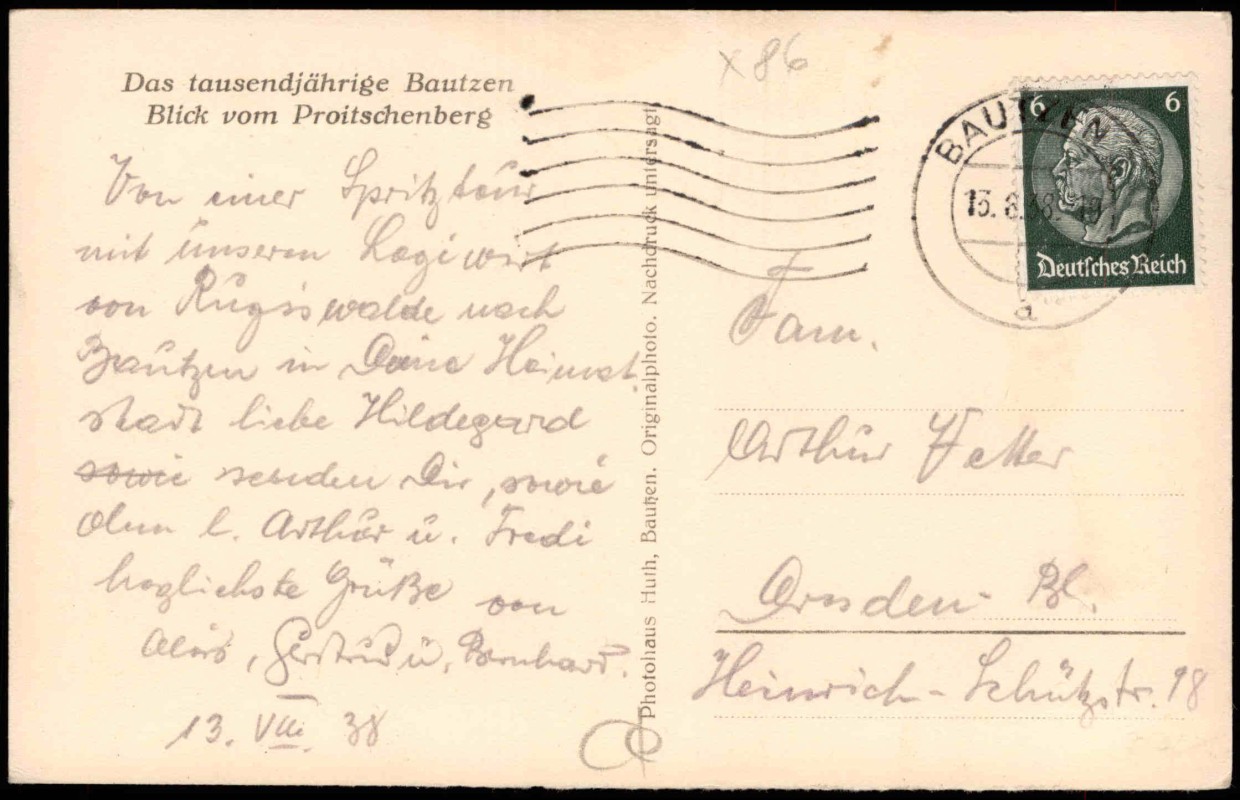 Das tausendjährige Bautzen
Blick vom Proitschenberg
Von einer Spritztour
mit unseren Logiwirt
von Rugiswalde nach
Bautzen in Deine Heimat
stadt liebe Hildegard
sowie senden Dir, sowie
l. Arthur u. Fredi
herzlichste Grüße von
Alois, Gertrud u. Bernhard.
13. VIII. 38
Photohaus Huth, Bautzen. Originalphoto. Nachdruck untersagt
x 86
BAUTZEN
13.8.38.
a
6 6
Deutsches Reich
Fam.
Arthur Vetter
Dresden- Bl.
Heinrich-Schützstr. 18